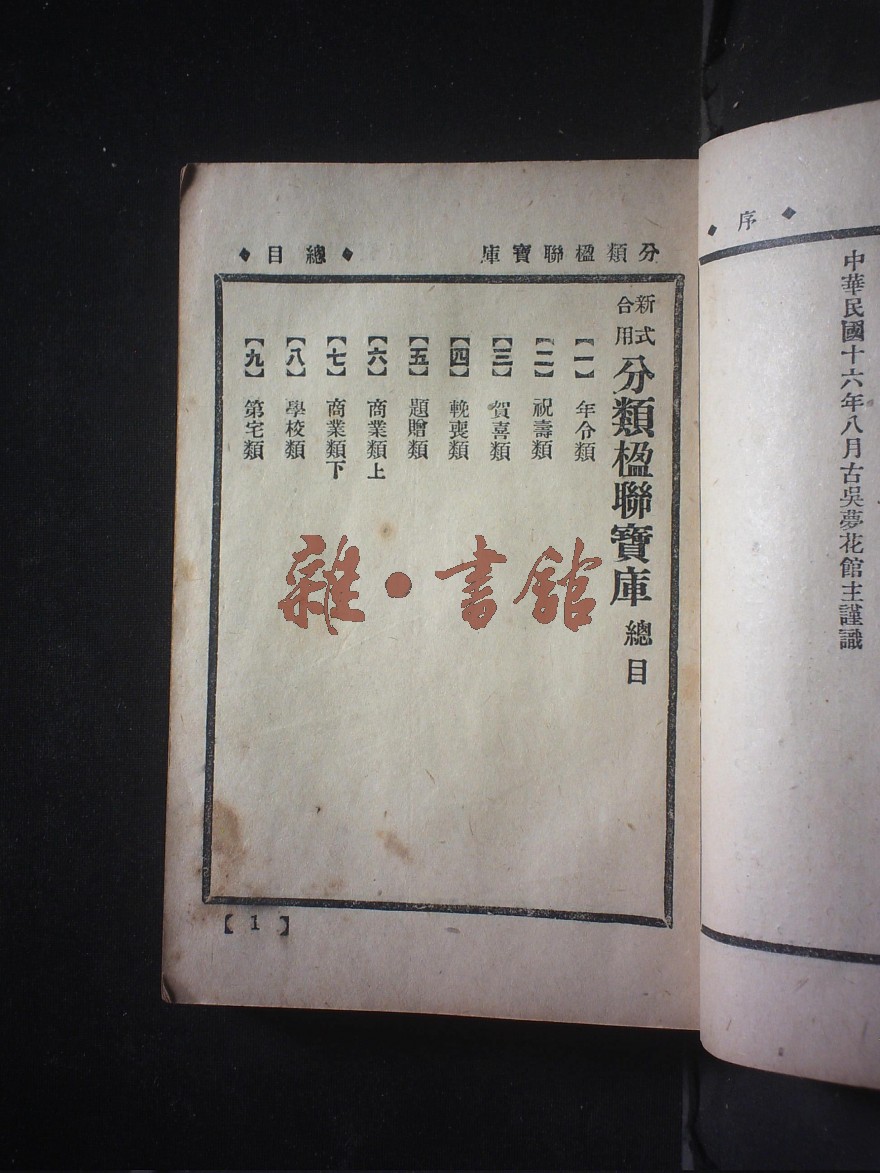 ◆ 序 ◆
中華民國十六年八月古吳夢花館主謹識
分類楹聯寶庫 ◆ 總目 ◆
新式合用 分類楹聯寶庫 總目
【一】 年令類
【二】 祝壽類
【三】 賀喜類
【四】 輓喪類
【五】 題贈類
【六】 商業類上
【七】 商業類下
【八】 學校類
【九】 第宅類
【1】
雜·書館